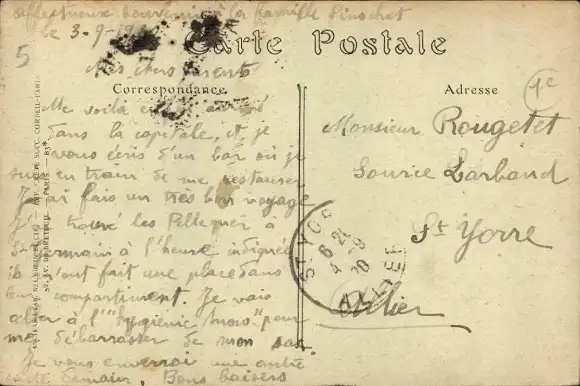 affectueux souvenir à la famille Pinochet
le 3-9-
Carte Postale
5
Mes chers parents
Correspondance
Adresse
1e
Me voilà arrivé
dans la capitale, et je
vous écris d'un bar où je
suis en train de me restaurer
J'ai fais un très bon voyage
j'ai trouvé les Pelleguer à
St Germain à l'heure indiquée
ils m'ont fait une place dans
leur compartiment. Je vais
aller à l'"hygienic " pour
me débarrasser de mon sac
Je vous enverrai une autre
carte demain. Bons baisers
Monsieur Rougetet
Source Larbaud
St Yorre
Allier
ST-YOR
ALLIER